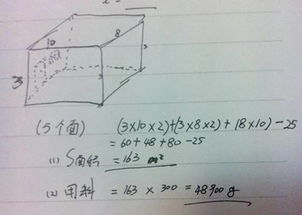 10
8
3
(5个面) (3×10×2)+(3×8×2)+(8×10)-25
= 60+48+80-25
(1) S面积 = 163 m²
(2) 用料 = 163 × 300 = 48900 g